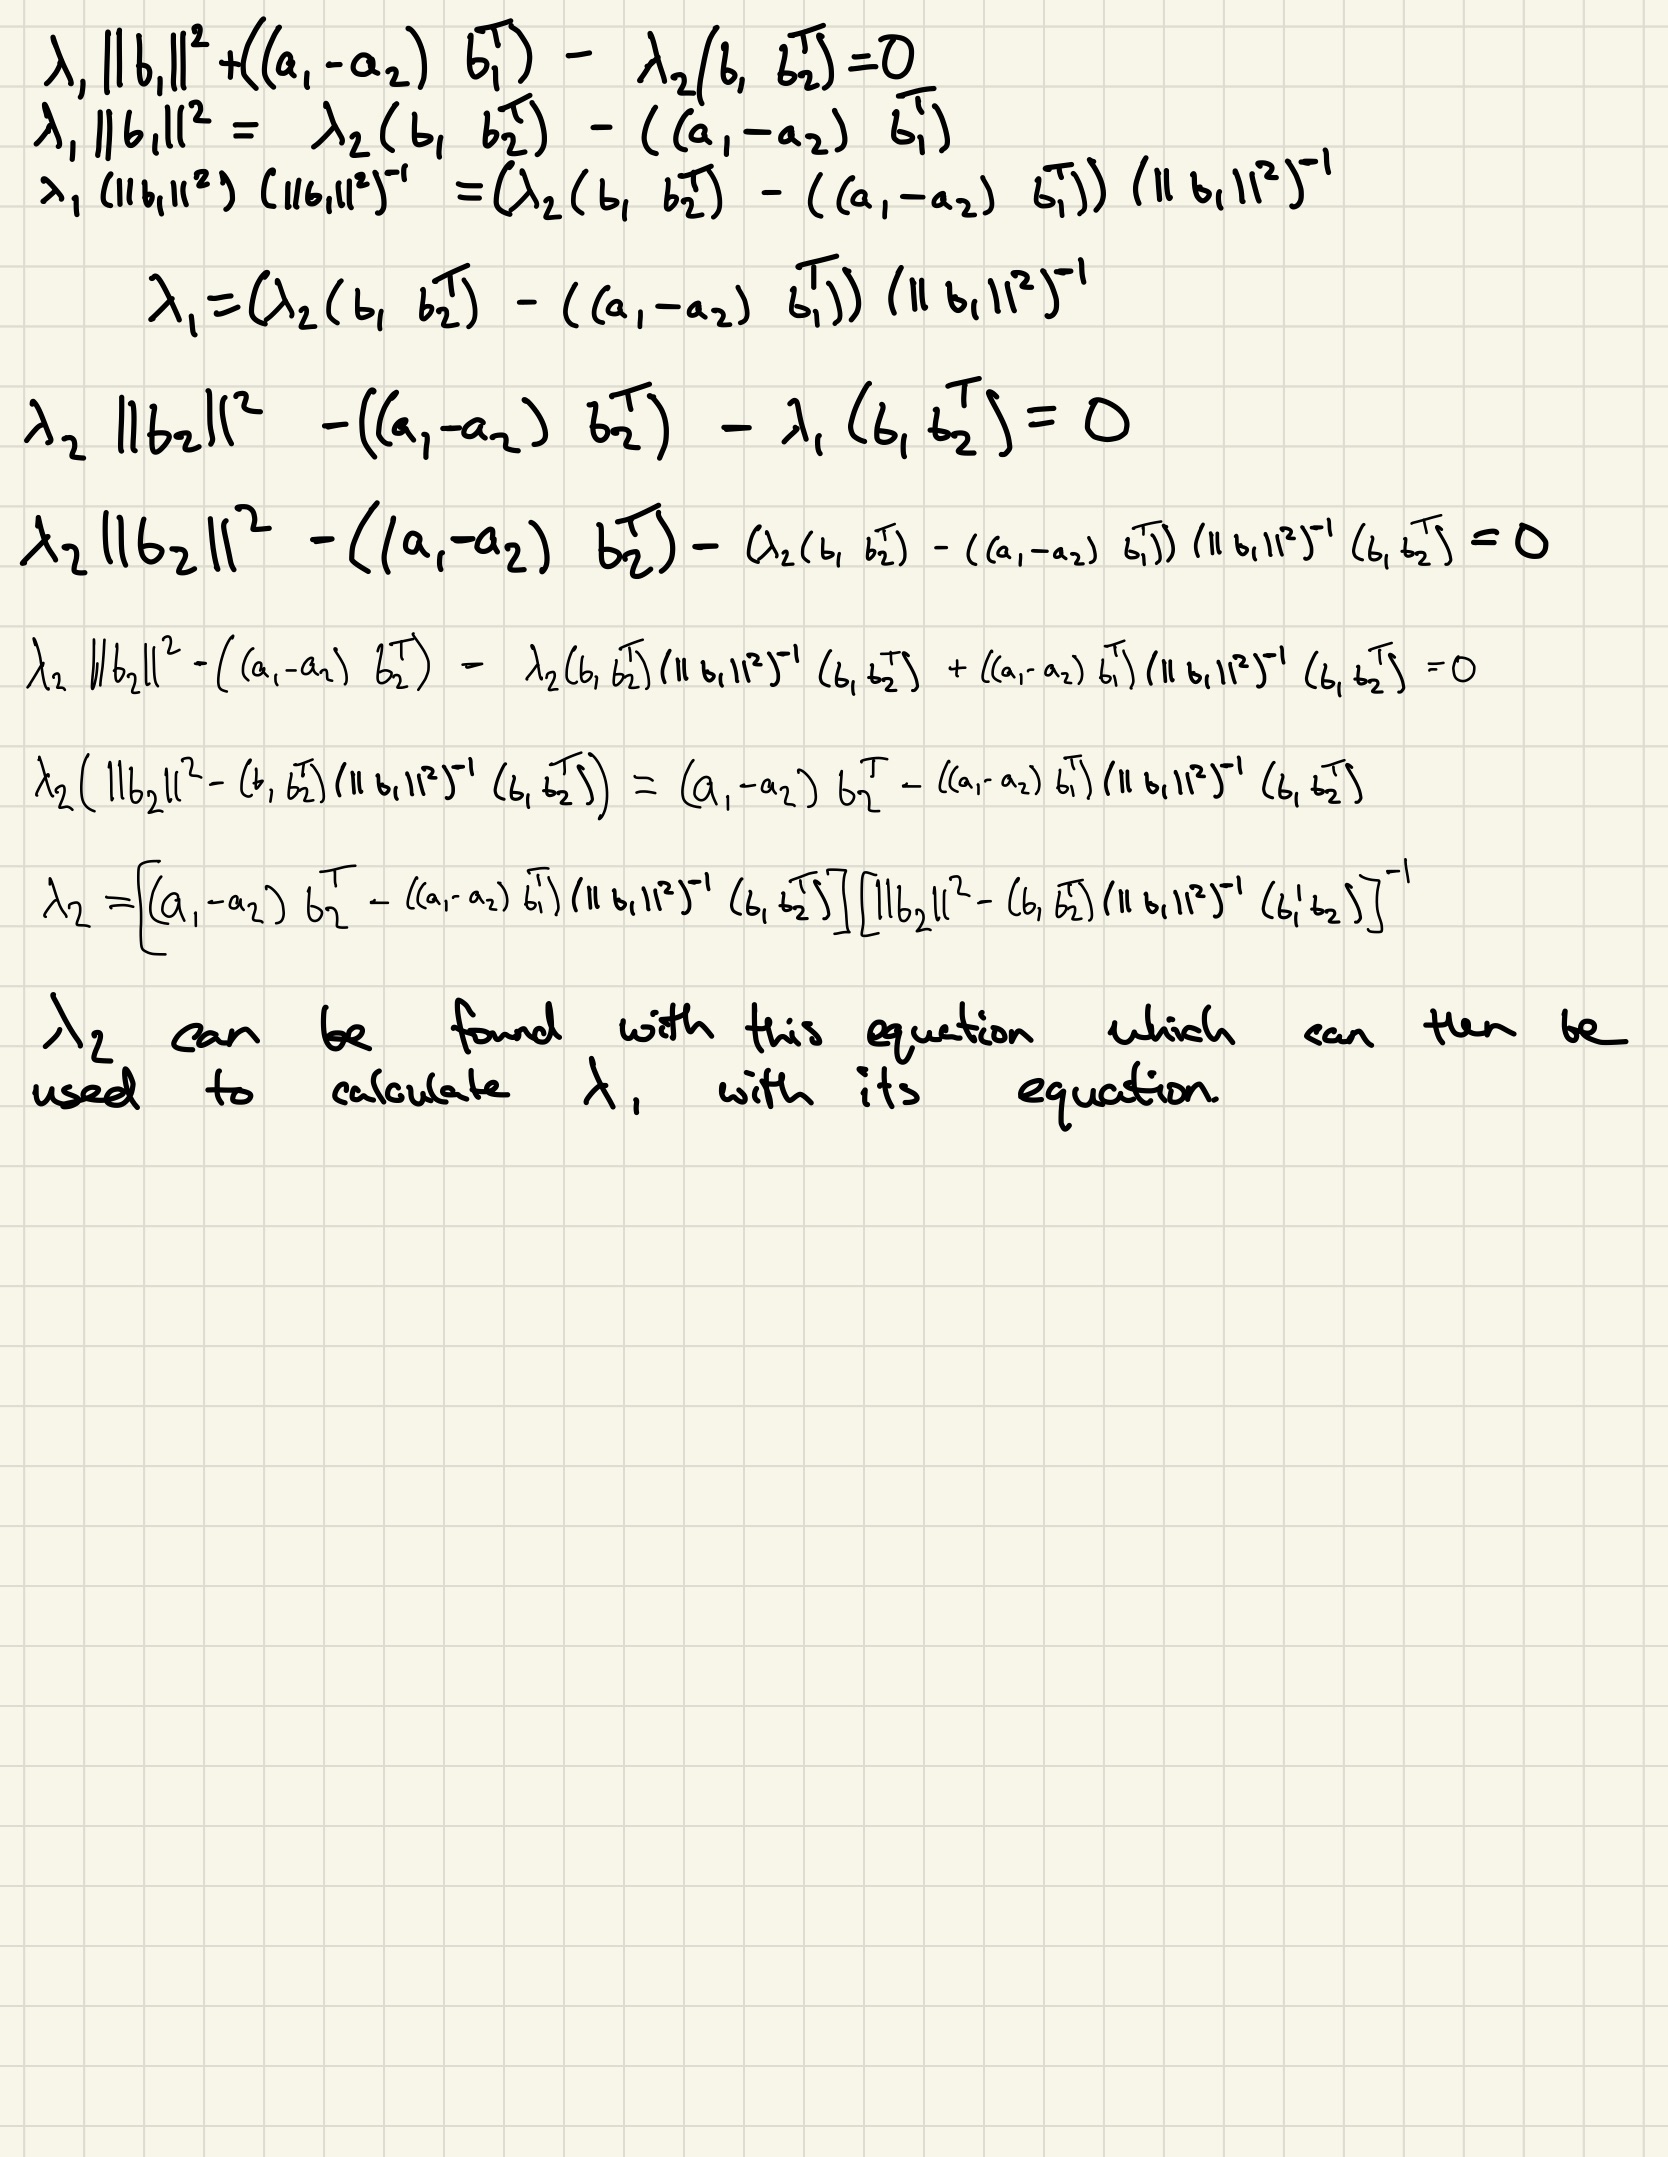 λ₁ ||b₁||² + ((a₁-a₂) b₁ᵀ) - λ₂(b₁ b₂ᵀ) = 0
λ₁ ||b₁||² = λ₂(b₁ b₂ᵀ) - ((a₁-a₂) b₁ᵀ)
λ₁ (||b₁||²) (||b₁||²)⁻¹ = (λ₂(b₁ b₂ᵀ) - ((a₁-a₂) b₁ᵀ)) (||b₁||²)⁻¹
λ₁ = (λ₂(b₁ b₂ᵀ) - ((a₁-a₂) b₁ᵀ)) (||b₁||²)⁻¹
λ₂ ||b₂||² - ((a₁-a₂) b₂ᵀ) - λ₁ (b₁ b₂ᵀ) = 0
λ₂ ||b₂||² - ((a₁-a₂) b₂ᵀ) - (λ₂(b₁ b₂ᵀ) - ((a₁-a₂) b₁ᵀ)) (||b₁||²)⁻¹ (b₁ b₂ᵀ) = 0
λ₂ ||b₂||² - ((a₁-a₂) b₂ᵀ) - λ₂(b₁ b₂ᵀ)(||b₁||²)⁻¹ (b₁ b₂ᵀ) + ((a₁-a₂) b₁ᵀ)(||b₁||²)⁻¹ (b₁ b₂ᵀ) = 0
λ₂(||b₂||² - (b₁ b₂ᵀ)(||b₁||²)⁻¹ (b₁ b₂ᵀ)) = (a₁-a₂) b₂ᵀ - ((a₁-a₂) b₁ᵀ)(||b₁||²)⁻¹ (b₁ b₂ᵀ)
λ₂ = [(a₁-a₂) b₂ᵀ - ((a₁-a₂) b₁ᵀ)(||b₁||²)⁻¹ (b₁ b₂ᵀ)] [||b₂||² - (b₁ b₂ᵀ)(||b₁||²)⁻¹ (b₁' b₂)]⁻¹
λ₂ can be found with this equation which can then be
used to calculate λ₁ with its equation.